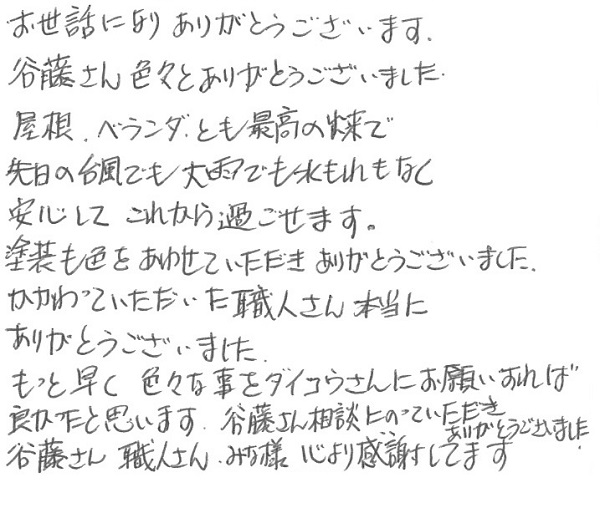 お世話になり ありがとうございます.
谷藤さん 色々とありがとうございました.
屋根、ベランダ.とも最高の出来で
先日の台風でも大雨でも水もれもなく
安心して これから過ごせます。
塗装も色をあわせていただき ありがとうございました.
かかわっていただいた職人さん 本当に
ありがとうございました.
もっと早く 色々な事をダイコウさんにお願いすれば
良かったと思います. 谷藤さん相談にのっていただき
ありがとうございました.
谷藤さん 職人さん.みな様 心より感謝してます